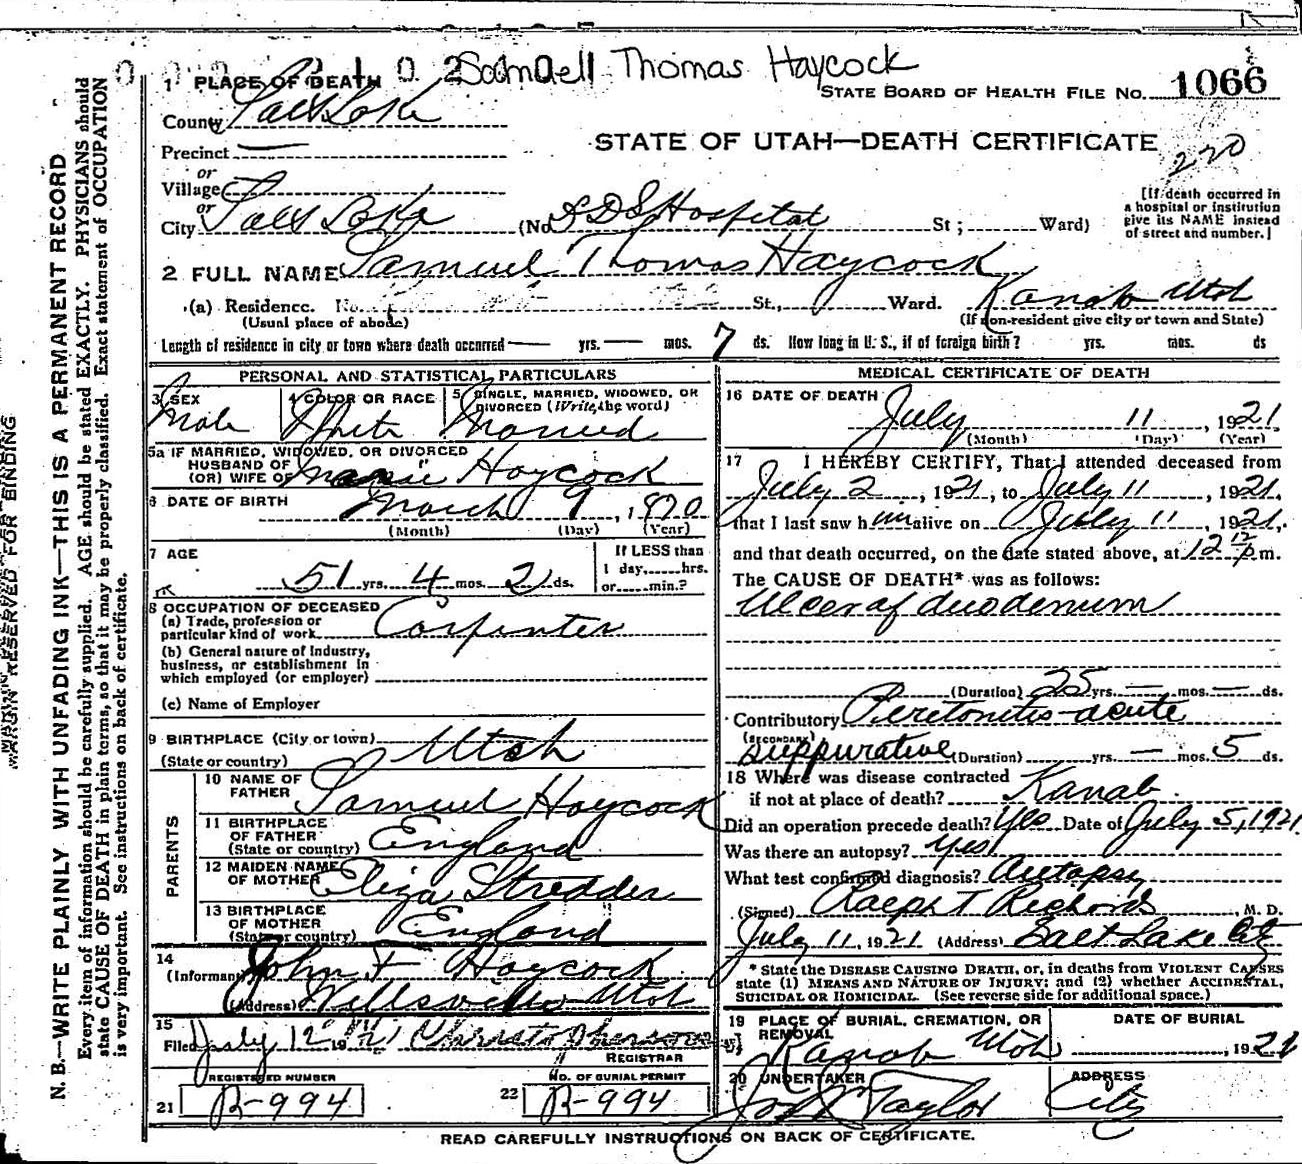 Samuell Thomas Haycock
1 PLACE OF DEATH
STATE BOARD OF HEALTH FILE No. 1066
County Salt Lake
STATE OF UTAH—DEATH CERTIFICATE
220
Precinct —
or
Village
or
City Salt Lake (No. LDS Hospital St; Ward)
[If death occurred in
a hospital or institution
give its NAME instead
of street and number.]
2 FULL NAME Samuel Thomas Haycock
(a) Residence. No. St., Ward. Kanab Utah
(Usual place of abode) (If non-resident give city or town and State)
Length of residence in city or town where death occurred — yrs. — mos. 7 ds. How long in U. S., if of foreign birth? yrs. mos. ds
PERSONAL AND STATISTICAL PARTICULARS
3 SEX
Male
4 COLOR OR RACE
White
5 SINGLE, MARRIED, WIDOWED, OR
DIVORCED (Write the word)
Married
5a IF MARRIED, WIDOWED, OR DIVORCED
HUSBAND OF
(OR) WIFE OF Haycock
6 DATE OF BIRTH
March 9, 1870
(Month) (Day) (Year)
7 AGE
51 yrs. 4 mos. 2 ds.
If LESS than
1 day,......hrs.
or......min.?
8 OCCUPATION OF DECEASED
(a) Trade, profession or
particular kind of work Carpenter
(b) General nature of Industry,
business, or establishment in
which employed (or employer)
(c) Name of Employer
9 BIRTHPLACE (City or town)
(State or country) Utah
PARENTS
10 NAME OF
FATHER Samuel Haycock
11 BIRTHPLACE
OF FATHER
(State or country) England
12 MAIDEN NAME
OF MOTHER Eliza Stredder
13 BIRTHPLACE
OF MOTHER
(State or country) England
14
(Informant) John F Haycock
(Address) Wellsville Utah
15
Filed July 12 1921
REGISTRAR
REGISTERED NUMBER
21 B-994
NO. OF BURIAL PERMIT
22 B-994
MEDICAL CERTIFICATE OF DEATH
16 DATE OF DEATH
July 11, 1921
(Month) (Day) (Year)
17 I HEREBY CERTIFY, That I attended deceased from
July 2, 1921, to July 11, 1921.
that I last saw him alive on July 11, 1921,
and that death occurred, on the date stated above, at 12 12 p m.
The CAUSE OF DEATH* was as follows:
Ulcer of duodenum
(Duration) 25 yrs. — mos. — ds.
Contributory Peretonitis-acute
(SECONDARY)
suppurative (Duration) yrs. — mos. 5 ds.
18 Where was disease contracted
if not at place of death? Kanab
Did an operation precede death? Yes Date of July 5, 1921
Was there an autopsy? yes
What test confirmed diagnosis? Autopsy
(Signed) Ralph T Richards, M. D.
July 11, 1921 (Address) Salt Lake City
* State the DISEASE CAUSING DEATH, or, in deaths from VIOLENT CAUSES
state (1) MEANS AND NATURE OF INJURY; and (2) whether ACCIDENTAL,
SUICIDAL OR HOMICIDAL. (See reverse side for additional space.)
19 PLACE OF BURIAL, CREMATION, OR
REMOVAL
Kanab Utah
DATE OF BURIAL
, 1921
20 UNDERTAKER
Taylor
ADDRESS
City
READ CAREFULLY INSTRUCTIONS ON BACK OF CERTIFICATE.
MARGIN RESERVED FOR BINDING
N. B.—WRITE PLAINLY WITH UNFADING INK—THIS IS A PERMANENT RECORD
Every item of information should be carefully supplied. AGE should be stated EXACTLY. PHYSICIANS should
state CAUSE OF DEATH in plain terms, so that it may be properly classified. Exact statement of OCCUPATION
is very important. See instructions on back of certificate.